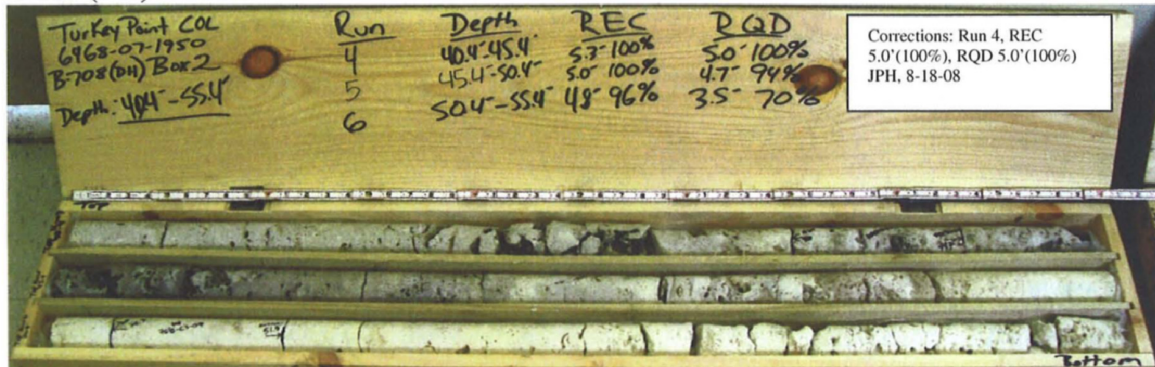 Turkey Point COL
6468-07-1950
B-708(DH) Box 2
Depth: 40.4'-55.4'
Run Depth REC RQD
4 40.4'-45.4' 5.3' 100% 5.0' 100%
5 45.4'-50.4' 5.0' 100% 4.7' 94%
6 50.4'-55.4' 4.8' 96% 3.5' 70%
Corrections: Run 4, REC
5.0'(100%), RQD 5.0'(100%)
JPH, 8-18-08
Top
Bottom